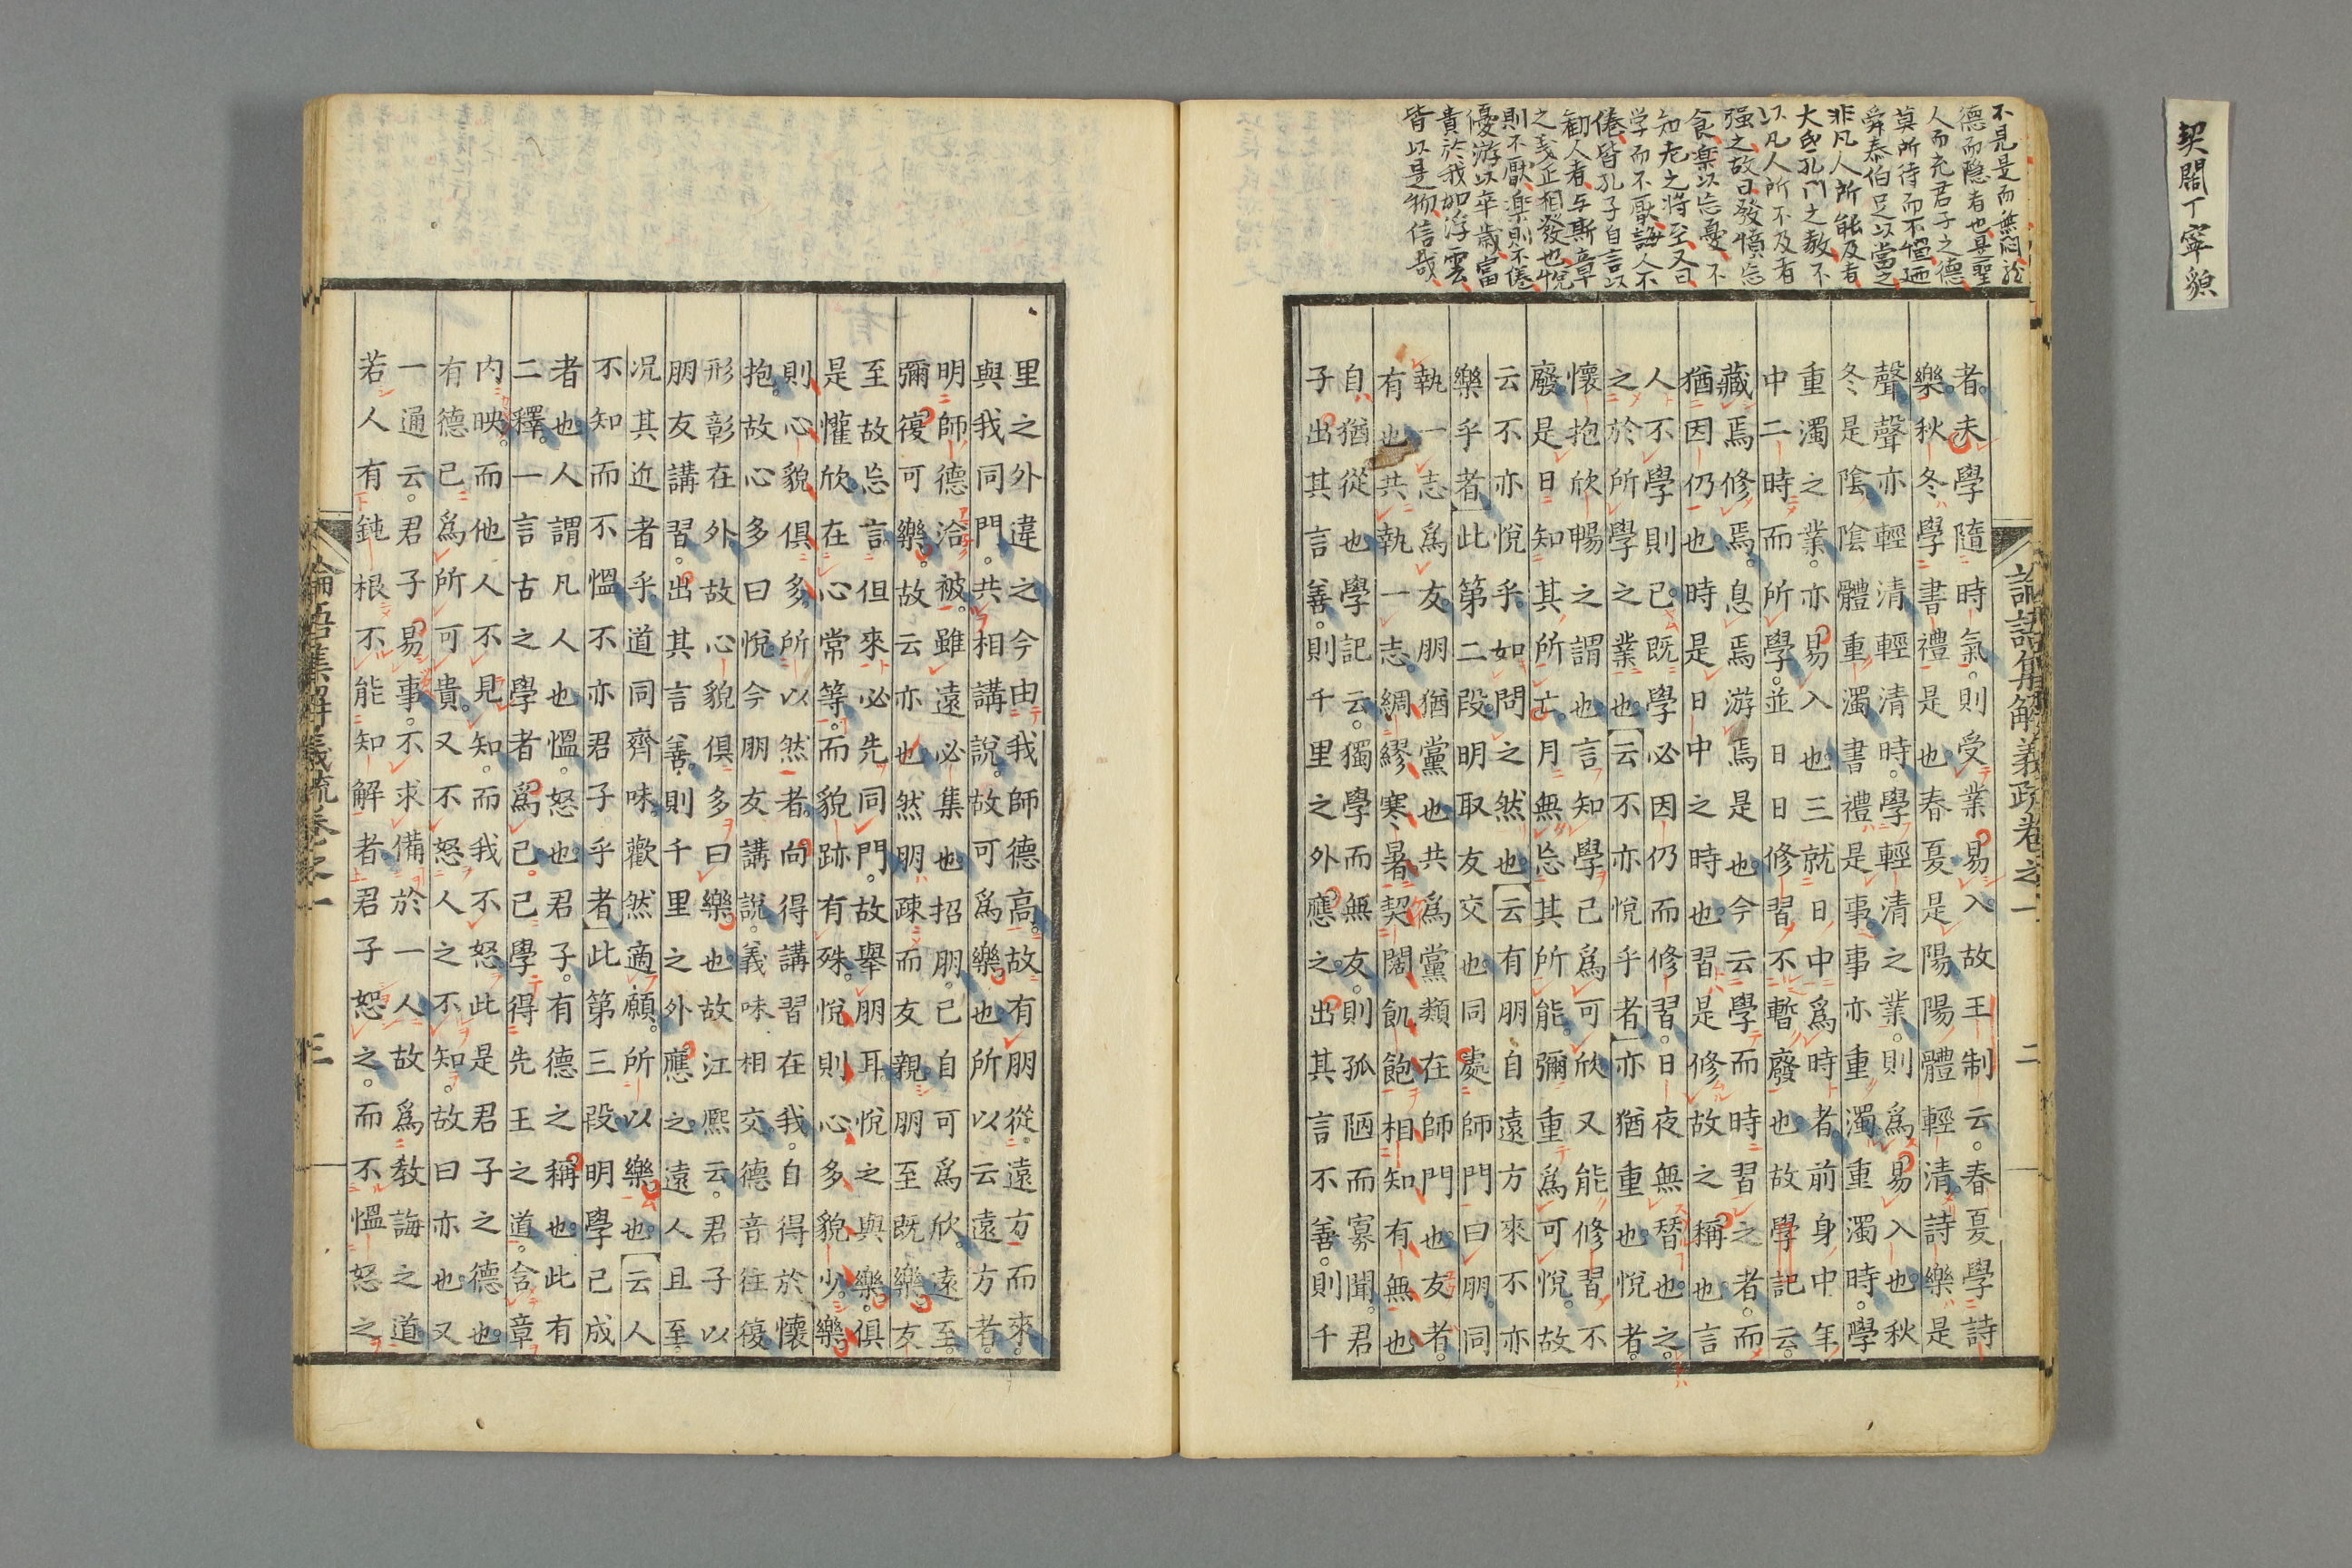 契闊丁寧貌
不見是而無悶龍
德而隱者也且聖
人而充君子之德
莫所待而不慍迺
舜泰伯足以當之
非凡人所能及者
大哉孔門之教不
以凡人所不及者
强之故曰發憤忘
食楽以忘憂不
知老之將至又曰
学而不厭誨人不
倦皆孔子自言以
勧人者与斯章
之義正相發也悦
則不厭楽則不倦
優游以卒歳富
貴於我如浮雲
皆以是物信哉
論語集解義疏卷之一
二
者。未學隨時氣。則受業易入。故王制云。春夏學詩
樂。秋冬學書禮是也。春夏是陽陽體輕清。詩樂是
聲聲亦輕清輕清時。學輕清之業。則爲易入也。秋
冬是陰陰體重濁書禮是事。事亦重濁重濁時。學
重濁之業。亦易入也。三就日中爲時者前身中年
中二時而所學。並日日修習不暫廢也。故學記云
藏焉修焉。息焉游焉是也。今云學而時習之者。而
猶因仍也。時是日中之時也。習是修故之稱也。言
人不學則已。既學必因仍而修習。日夜無替也。之
之於所學之業也。云不亦悅乎者。亦猶重也。悅者。
懷抱欣暢之謂也。言知學已爲可欣又能修習不
廢。是日知其所亡。月無忘其所能。彌重爲可悅。故
云不亦悅乎。如問之然也。云有朋自遠方來不亦
樂乎者。此第二段。明取友交也。同處師門曰朋。同
執一志爲友。朋猶黨也。共爲黨類在師門也。友者。
有也。共執一志。綢繆寒暑契闊飢飽相知有無也
自猶從也學記云。獨學而無友。則孤陋而寡聞。君
子出其言善。則千里之外應之。出其言不善。則千
里之外違之。今由我師德高。故有朋從遠方而來。
與我同門。共相講說。故可爲樂也。所以云遠方者。
明師德洽被。雖遠必集也。招朋已自可爲欣。遠至。
彌復可樂。故云亦也。然朋疎而友親。朋至既樂。友
至故忘言。但來必先同門。故舉朋耳。悅之與樂。俱
是懽欣。在心常等。而貌跡有殊。悅則心多貌少。樂
則心貌俱多。所以然者。向得講習在我。自得於懷
抱。故心多曰悅。今朋友講說。義味相交。德音往復
形彰在外。故心貌俱多曰樂也。故江熙云。君子以
朋友講習。出其言善。則千里之外應之。遠人且至。
况其近者乎。道同齊味。歡然適願。所以樂也。云人
不知而不慍不亦君子乎者此第三段明學已成
者也。人謂凡人也。慍。怒也。君子。有德之稱也。此有
二釋。一言古之學者爲己。已學得先王之道。含章
内映。而他人不見知。而我不怒。此是君子之德也。
有德已爲所可貴。又不怒人之不知。故曰亦也。又
一通云。君子易事。不求備於一人。故爲教誨之道。
若人有鈍根不能知解者。君子恕之。而不慍怒之
論語集解義疏卷之一
三